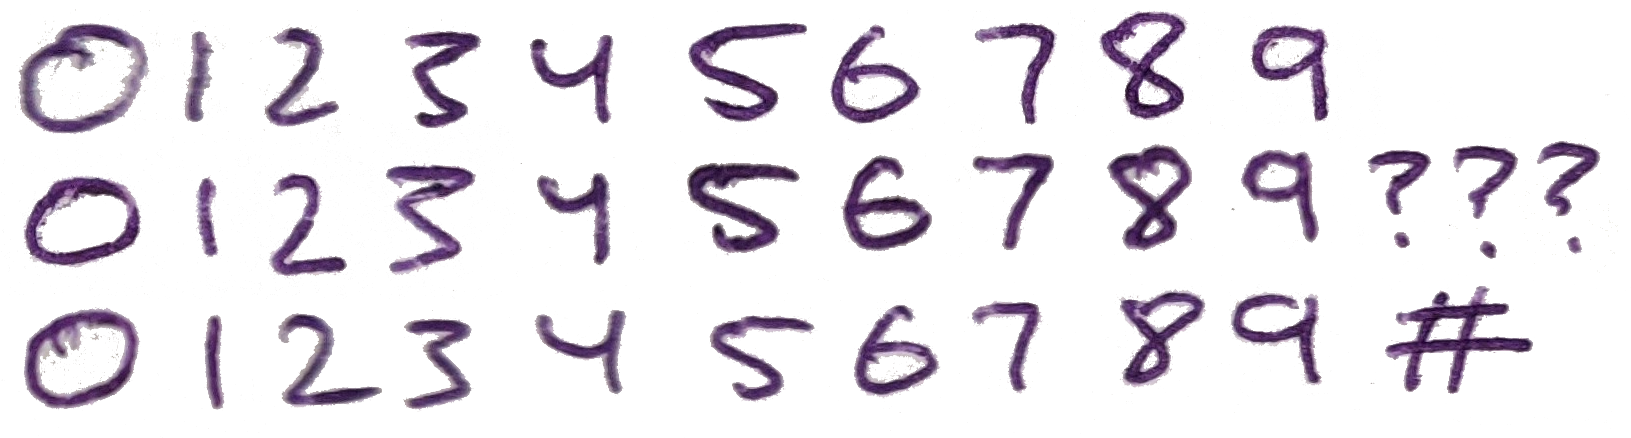 0 1 2 3 4 5 6 7 8 9
0 1 2 3 4 5 6 7 8 9 ? ? ?
0 1 2 3 4 5 6 7 8 9 #